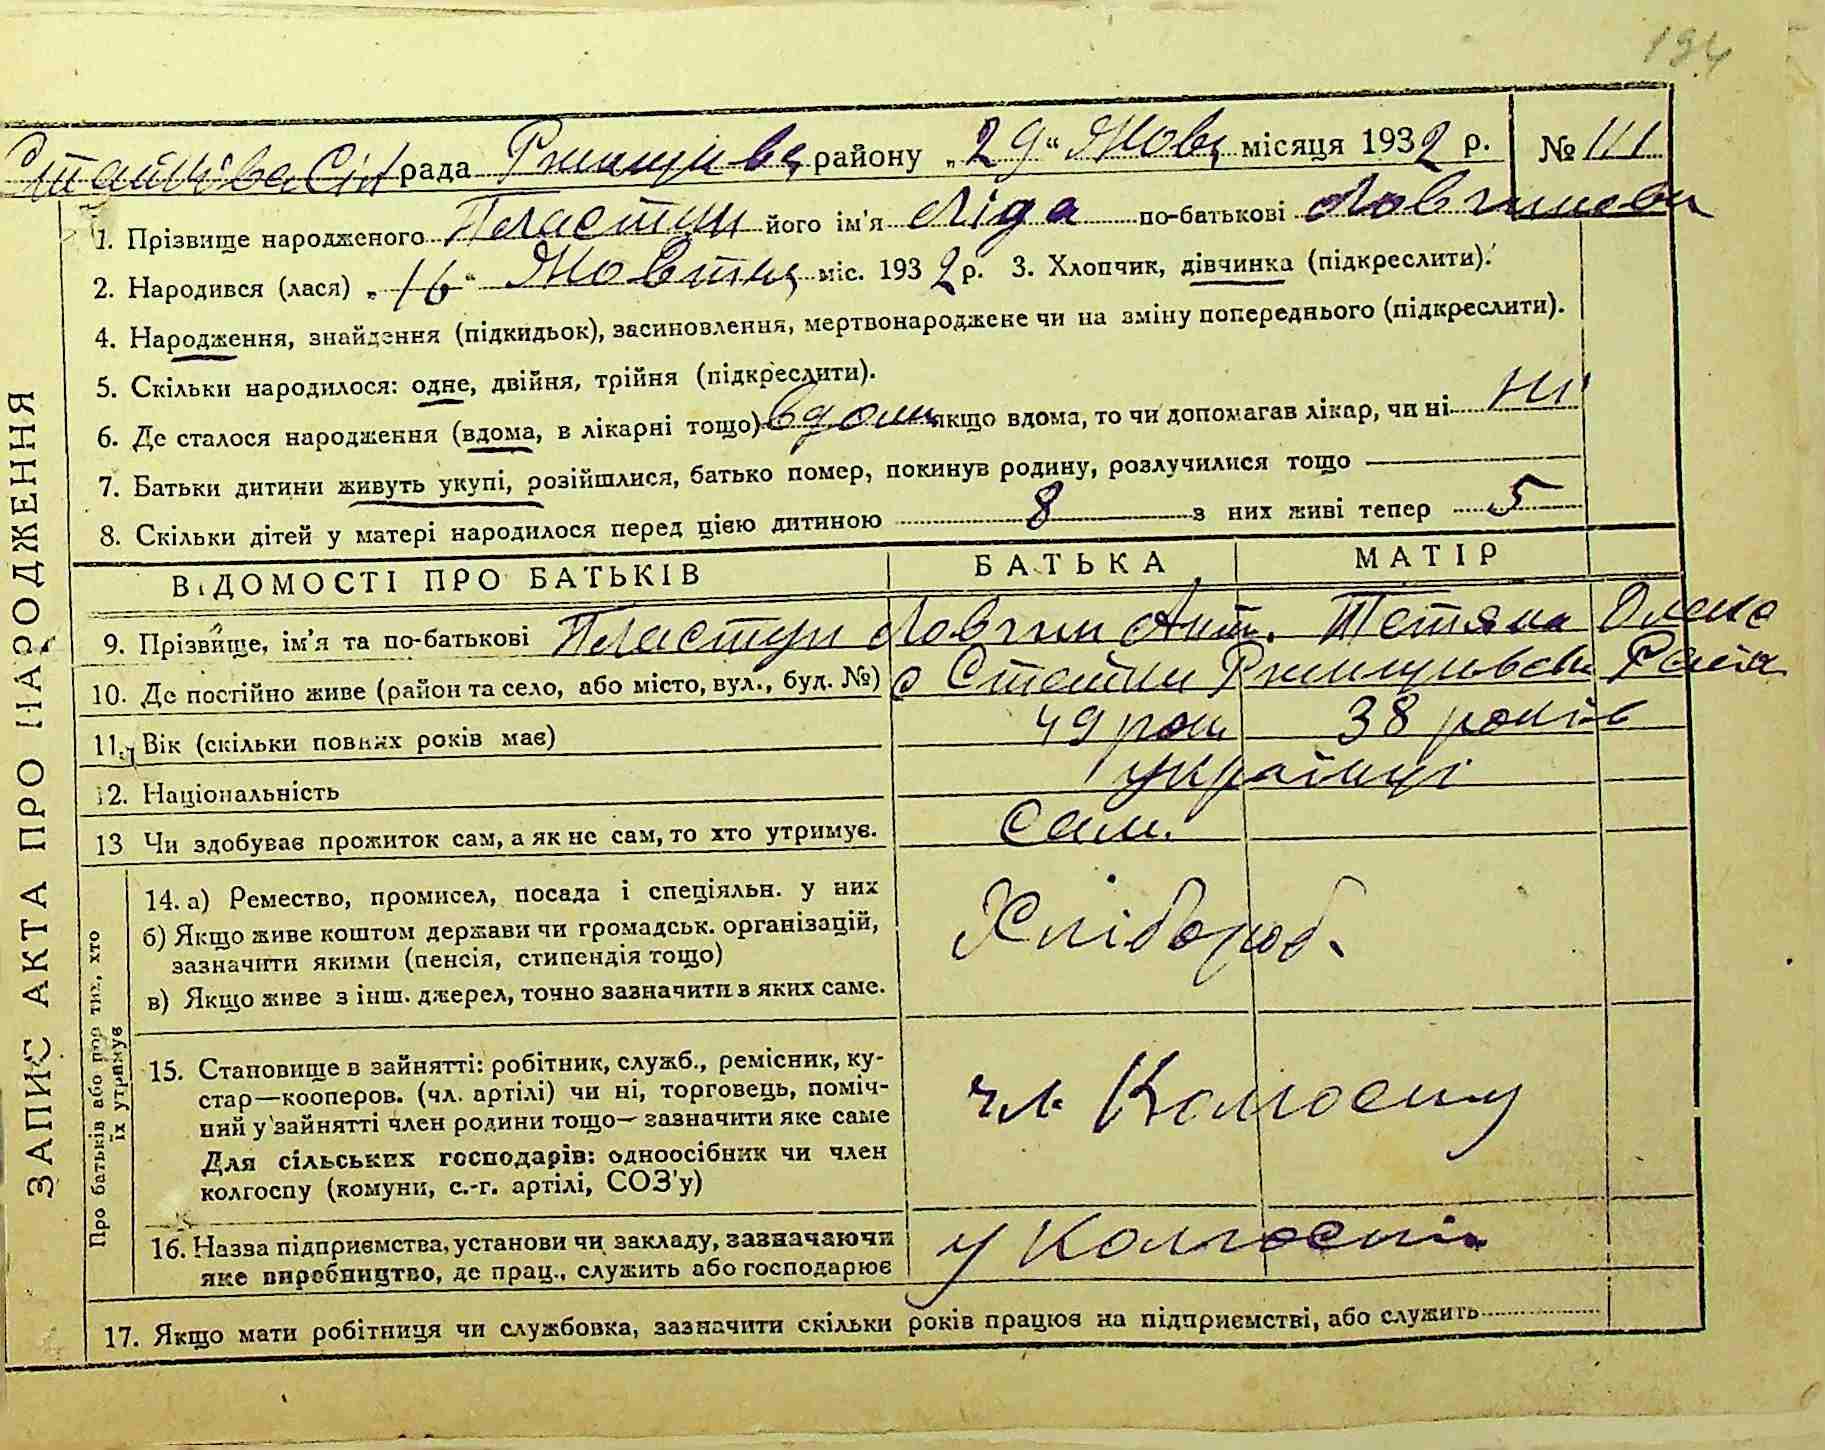 194
Стайківська Сіл рада Ржищівс району „29" Жовт місяця 1932 р. № 111
ЗАПИС АКТА ПРО НАРОДЖЕННЯ
1. Прізвище народженого Пластун його ім'я Ліда по-батькові Ловгинова
2. Народився (лася) „16" Жовтня міс. 1932 р. 3. Хлопчик, дівчинка (підкреслити).
4. Народження, знайдення (підкидьок), засиновлення, мертвонароджене чи на зміну попереднього (підкреслити).
5. Скільки народилося: одне, двійня, трійня (підкреслити).
6. Де сталося народження (вдома, в лікарні тощо) вдома якщо вдома, то чи допомагав лікар, чи ні Ні
7. Батьки дитини живуть укупі, розійшлися, батько помер, покинув родину, розлучилися тощо —
8. Скільки дітей у матері народилося перед цією дитиною 8 з них живі тепер 5
ВІДОМОСТІ ПРО БАТЬКІВ БАТЬКА МАТІР
9. Прізвище, ім'я та по-батькові Пластун Ловгин Ант. Тетяна Олекс
10. Де постійно живе (район та село, або місто, вул., буд. №) с Стайки Ржищівськ Району
11. Вік (скільки повних років має) 49 рок 38 років
12. Національність українці
13 Чи здобуває прожиток сам, а як не сам, то хто утримує. Сам.
Про батьків або про тих, хто їх утримує
14. а) Ремество, промисел, посада і спеціяльн. у них
б) Якщо живе коштом держави чи громадськ. організацій,
зазначити якими (пенсія, стипендія тощо)
в) Якщо живе з інш. джерел, точно зазначити в яких саме.
Хлібороб.
15. Становище в зайнятті: робітник, служб., ремісник, ку-
стар—кооперов. (чл. артілі) чи ні, торговець, поміч-
ний у зайнятті член родини тощо— зазначити яке саме
Для сільських господарів: одноосібник чи член
колгоспу (комуни, с.-г. артілі, СОЗ'у)
чл. Колгоспу
16. Назва підприємства, установи чи закладу, зазначаючи
яке виробництво, де прац., служить або господарює
у Колгоспі
17. Якщо мати робітниця чи службовка, зазначити скільки років працює на підприємстві, або служить